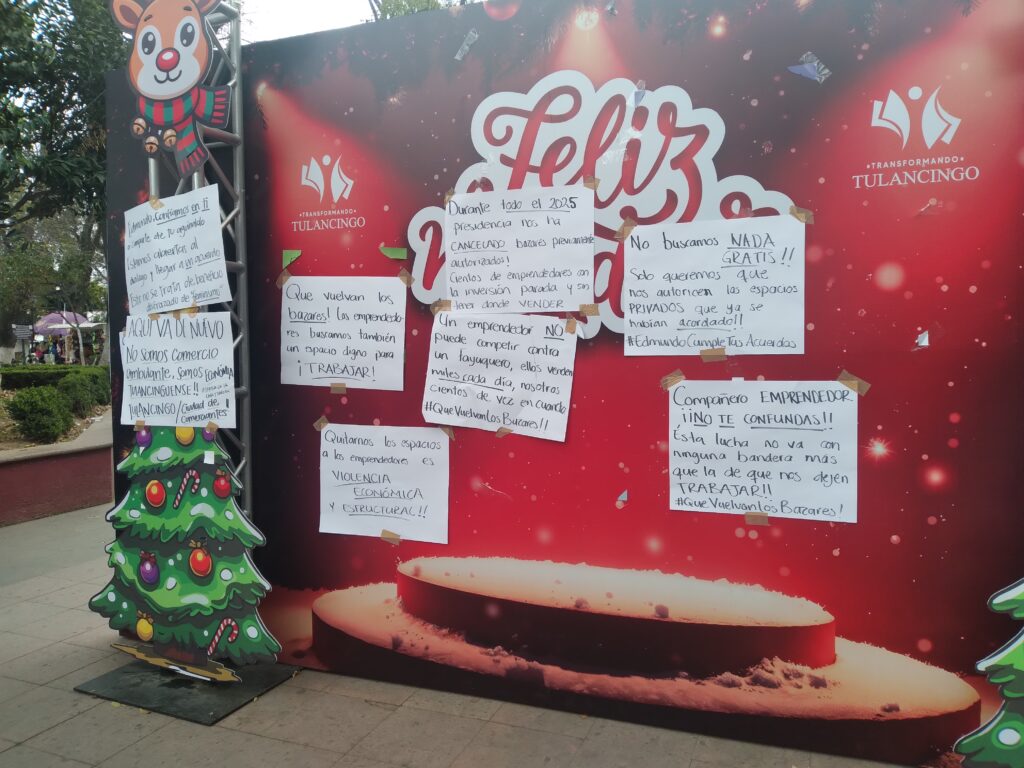 Feliz
TRANSFORMANDO
TULANCINGO
TRANSFORMANDO
TULANCINGO
Confiamos en ti
AQUÍ VA DE NUEVO
No somos Comercio
Ambulante, somos ECONOMÍA
TULANCINGUENSE!!
TULANCINGO/Ciudad de
Comerciantes!
Que vuelvan los
bazares! Los emprendedo-
res buscamos también
un espacio digno para
¡TRABAJAR!
Durante todo el 2025
presidencia nos ha
CANCELADO bazares previamente
autorizados!
Cientos de emprendedores con
la inversión parada y sin
tener donde VENDER
Un emprendedor NO
puede competir contra
un tayuquero, ellos venden
miles cada día, nosotros
cientos de vez en cuando
#QueVuelvanLosBazares!!
Quitarnos los espacios
a los emprendedores es
VIOLENCIA
ECONÓMICA
Y ESTRUCTURAL!!
No buscamos NADA
GRATIS!!
Solo queremos que
nos autoricen los espacios
PRIVADOS que ya se
habían acordado!!
#EdmundoCumpleTusAcuerdos
Compañero EMPRENDEDOR
¡¡NO TE CONFUNDAS!!
Ésta lucha no va con
ninguna bandera más
que la de que nos dejen
TRABAJAR!!
#QueVuelvanLosBazares!